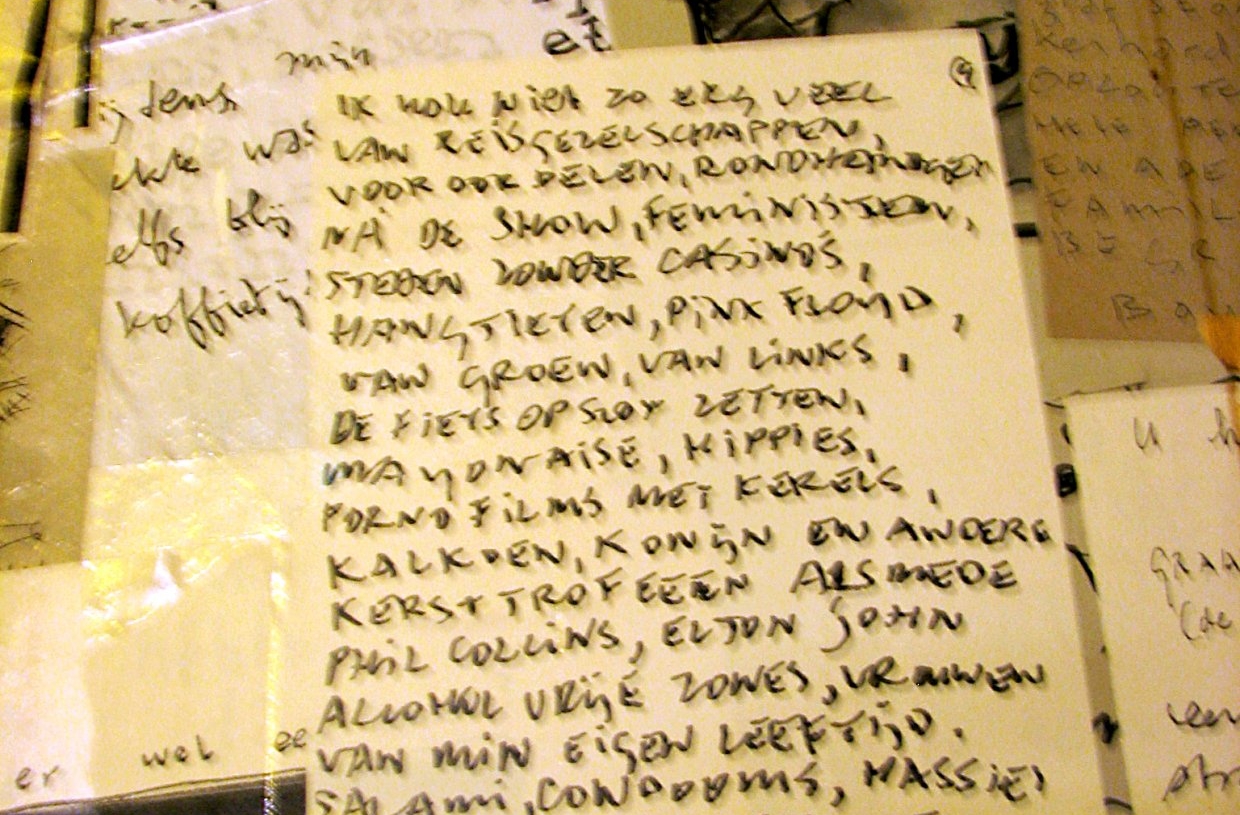 mijn
et
ijdens
ekte was
elfs blij
koffietij
④
IK HOU NIET ZO ERG VEEL
VAN REISGEZELSCHAPPEN,
VOOR OOR DELEN, RONDHANGEN
NA DE SHOW, FEMINISTEN,
STEDEN ZONDER CASINO'S,
HANGTIETEN, PINK FLOYD,
VAN GROEN, VAN LINKS,
DE FIETS OP SLOT ZETTEN,
MAYONAISE, HIPPIES,
PORNO FILMS MET KERELS,
KALKOEN, KONIJN EN ANDERE
KERST TROFEEËN ALSMEDE
PHIL COLLINS, ELTON JOHN
ALCOHOL VRIJE ZONES, VROUWEN
VAN MIJN EIGEN LEEFTIJD.
SALAMI, CONDOOMS,
er wel ee
EN ADE
FAMIL
BE
U h
GRAA
(de